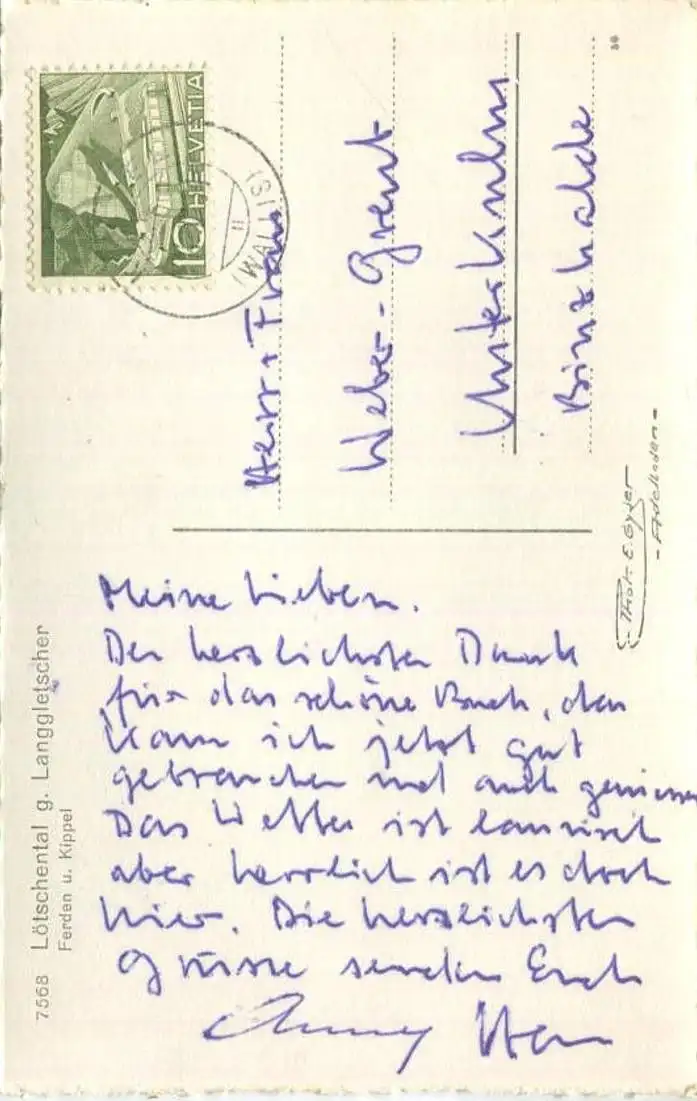 10 HELVETIA
(WALLIS)
Herr + Frau
Weber-
Unterkulm
Binzhalde
38
Phot. E. Gyger
- Adelboden -
7568 Lötschental g. Langgletscher
Ferden u. Kippel
Meine Lieben.
Den herzlichsten Dank
für das schöne Buch, das
kann ich jetzt gut
gebrauchen und auch geniessen
Das Wetter ist launisch
aber herrlich ist es doch
hier. Die herzlichsten
Grüsse senden Euch